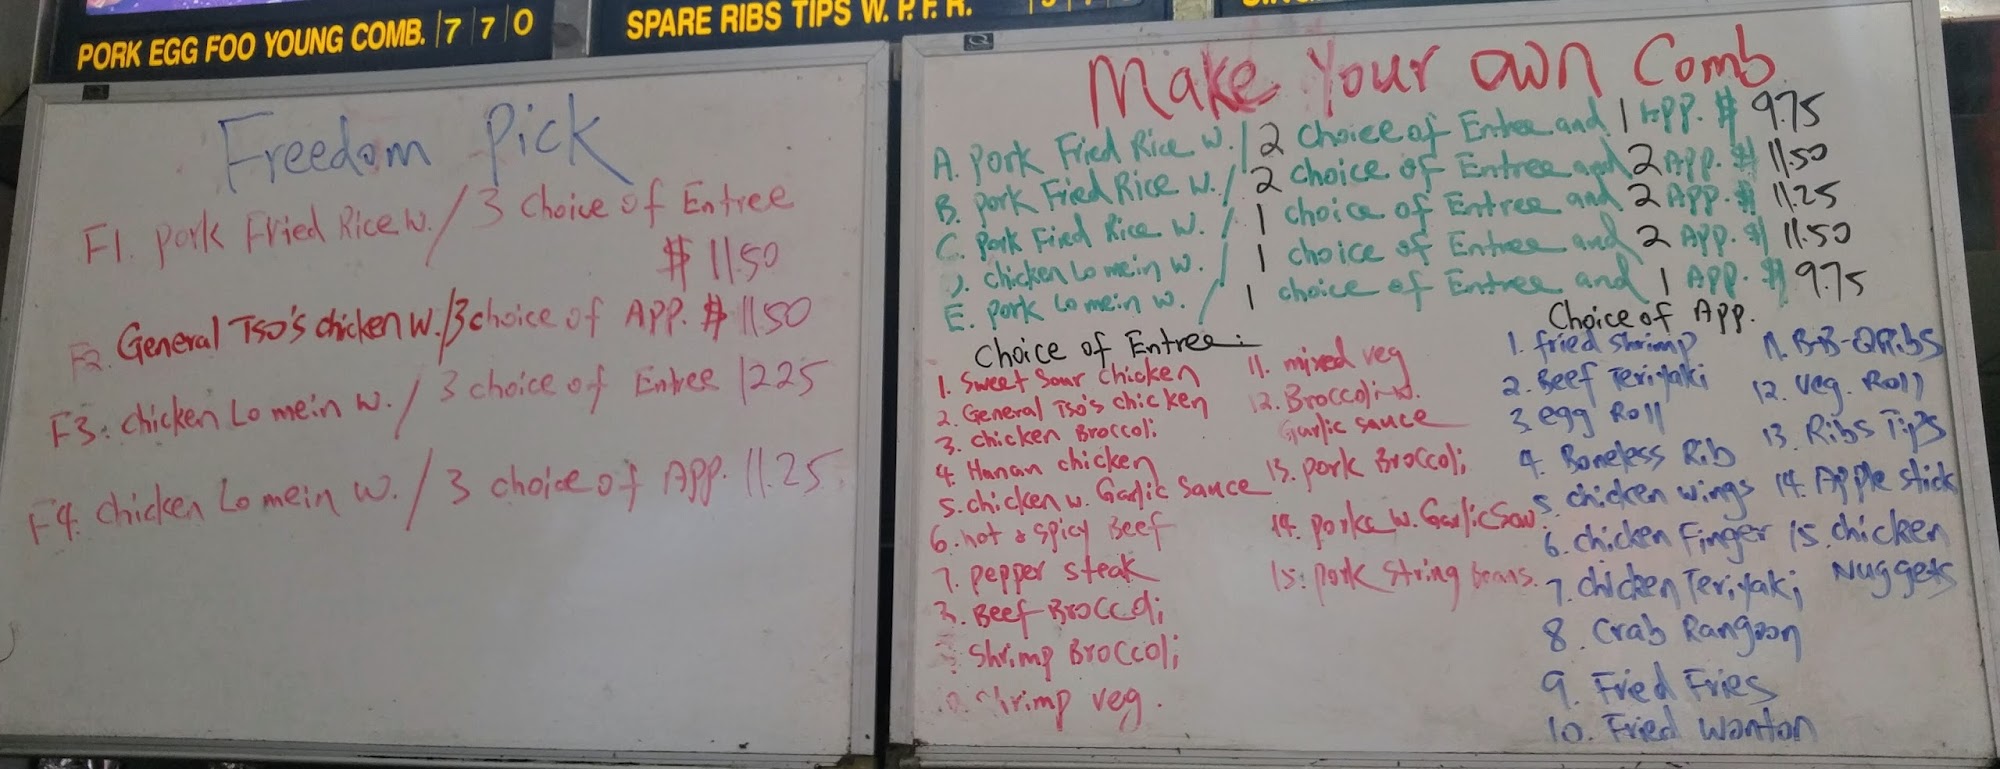 PORK EGG FOO YOUNG COMB. 7 7 0
SPARE RIBS TIPS W. P. F. R.
Freedom Pick
F1. Pork Fried Rice w./ 3 Choice of Entree
$ 11.50
F2. General Tso's chicken w./3 choice of APP. $ 11.50
F3. Chicken Lo mein w./ 3 choice of Entree 12.25
F4. Chicken Lo mein w./ 3 choice of APP. 11.25
Make Your Own Comb
A. Pork Fried Rice w./2 Choice of Entree and 1 APP. $ 9.75
B. Pork Fried Rice w./ 2 choice of Entree and 2 APP. $ 11.50
C. Pork Fired Rice w./ 1 choice of Entree and 2 APP. $ 11.25
D. chicken Lo mein w./ 1 choice of Entree and 2 APP. $ 11.50
E. Pork Lo mein w./ 1 choice of Entree and 1 APP. $ 9.75
Choice of Entree:
1. Sweet Sour Chicken
2. General Tso's chicken
3. chicken Broccoli
4. Hanan chicken
5. chicken w. Garlic Sauce
6. hot & spicy Beef
7. pepper steak
Beef Broccoli
Shrimp Broccoli
Shrimp veg.
11. mixed veg
12. Broccoli w.
Garlic sauce
13. pork Broccoli
14. porke w. Garlic Sau.
15. pork string beans.
Choice of App.
1. fried shrimp
2. Beef Teriyaki
3. egg Roll
4. Boneless Rib
5. chicken wings
6. chicken Finger
7. chicken Teriyaki
8. Crab Rangoon
9. Fried Fries
10. Fried Wonton
11. B-B-Q Ribs
12. Veg. Roll
13. Ribs Tips
14. Apple stick
15. chicken
Nuggets